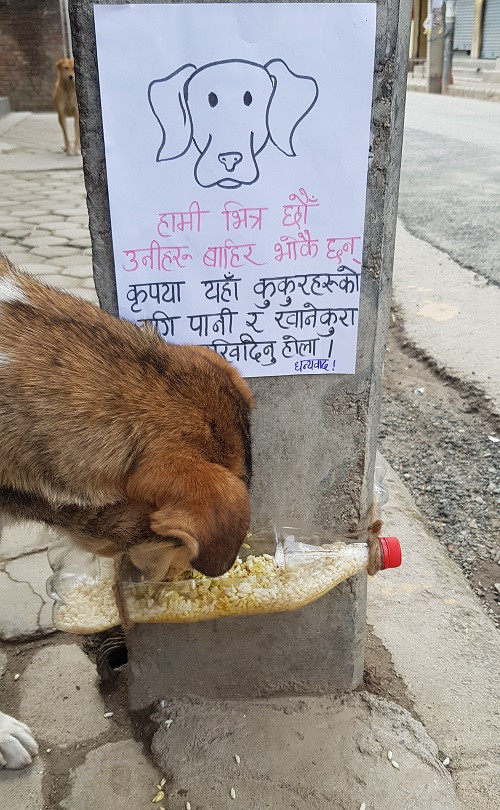 हामी भित्र छौँ
उनीहरू बाहिर भोकै छन्
कृपया यहाँ कुकुरहरूको
लागि पानी र खानेकुरा
राखिदिनु होला ।
धन्यवाद !